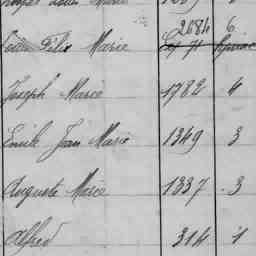 2684 6
Félix Marie
Joseph Marie 1782 4
Emile Jean Marie 1349 3
Auguste Marie 1337 3
Alfred 314 1